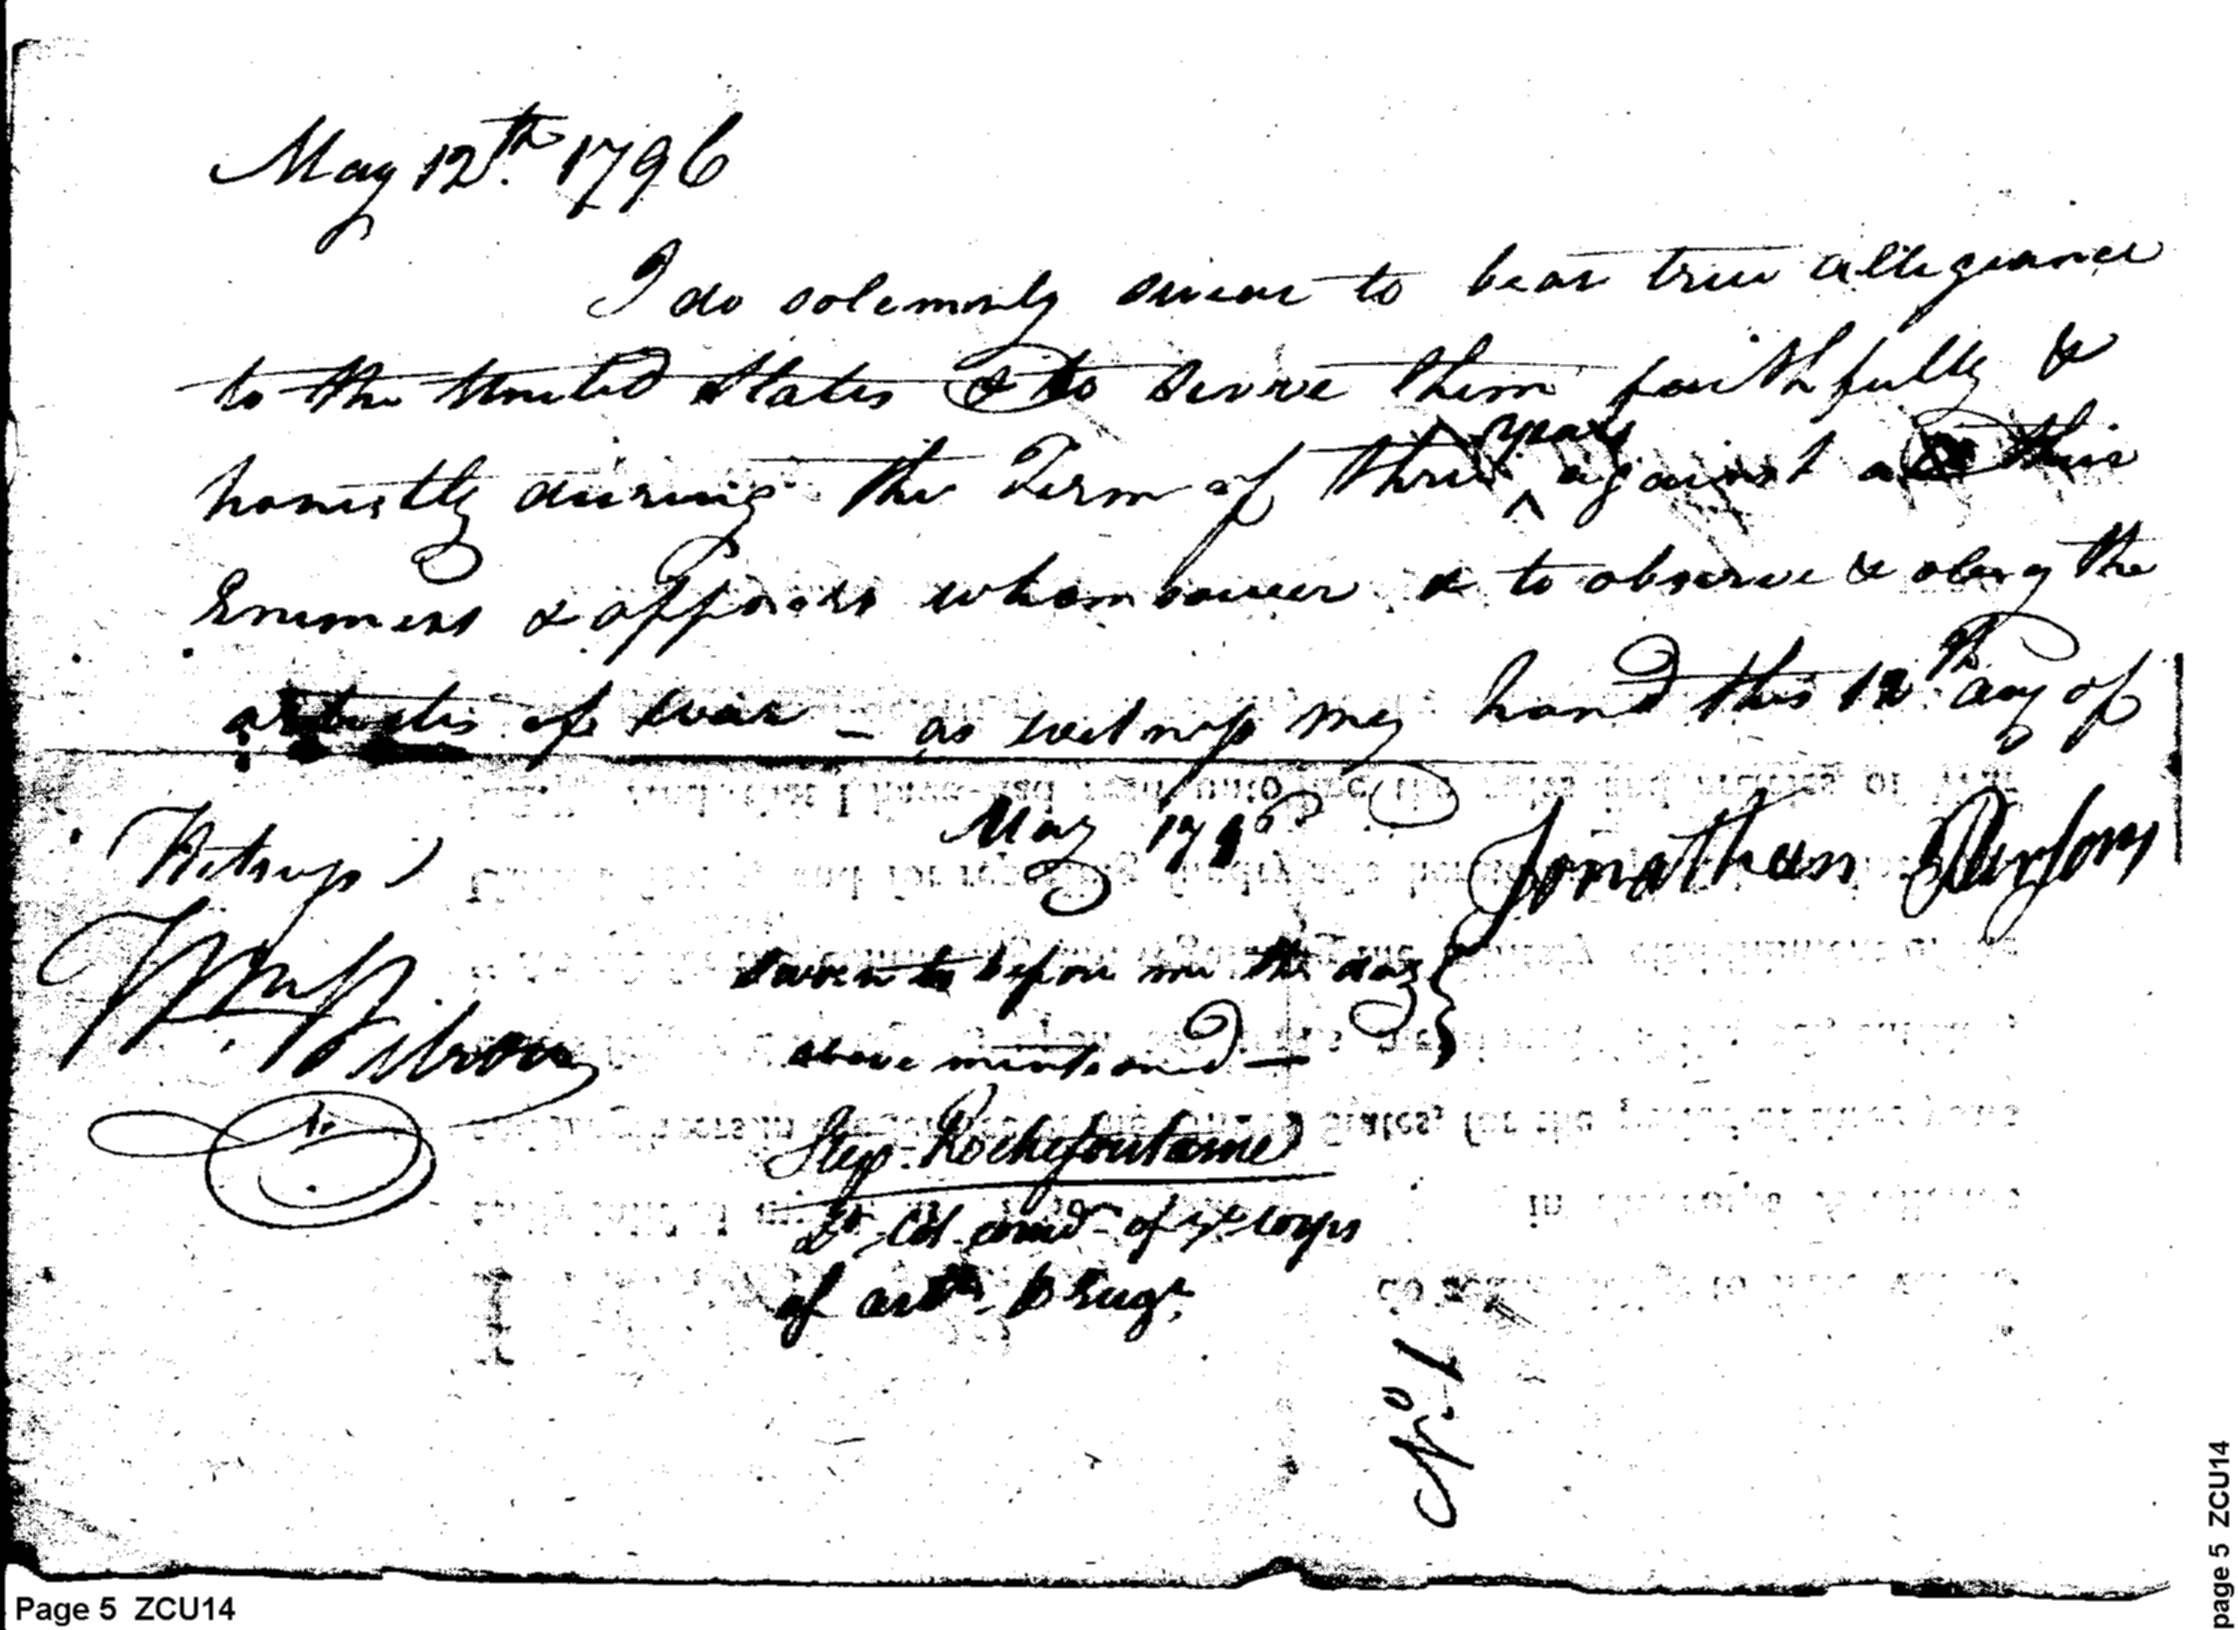 May 12th. 1796
I do solemnly swear to bear true allegiance
to the United States & to serve them faithfully &
honestly during the Term of three years against all their
Enemies & opposers whomsoever & to observe & obey the
articles of war - as witness my hand this 12th day of
May 1796
Jonathan Parsons
Witness
Wm Wilson
Sworn to before me the day
above mentioned —
Step. Rochefontaine
Lt. Col. comdt of ye corps
of artrs & Engrs.
No. 1
Page 5 ZCU14
page 5 ZCU14